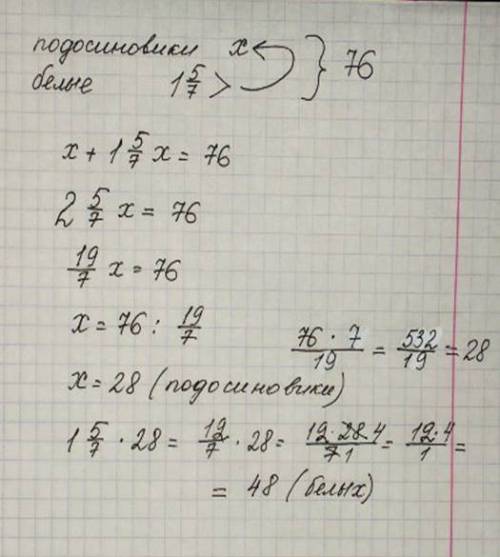 подосиновики x } 76
белые 1 5/7 >
x + 1 5/7 x = 76
2 5/7 x = 76
19/7 x = 76
x = 76 : 19/7
76 · 7/19 = 532/19 = 28
x = 28 (подосиновики)
1 5/7 · 28 = 12/7 · 28 = 12 · 28 4/7 1 = 12 · 4/1 =
= 48 (белых)